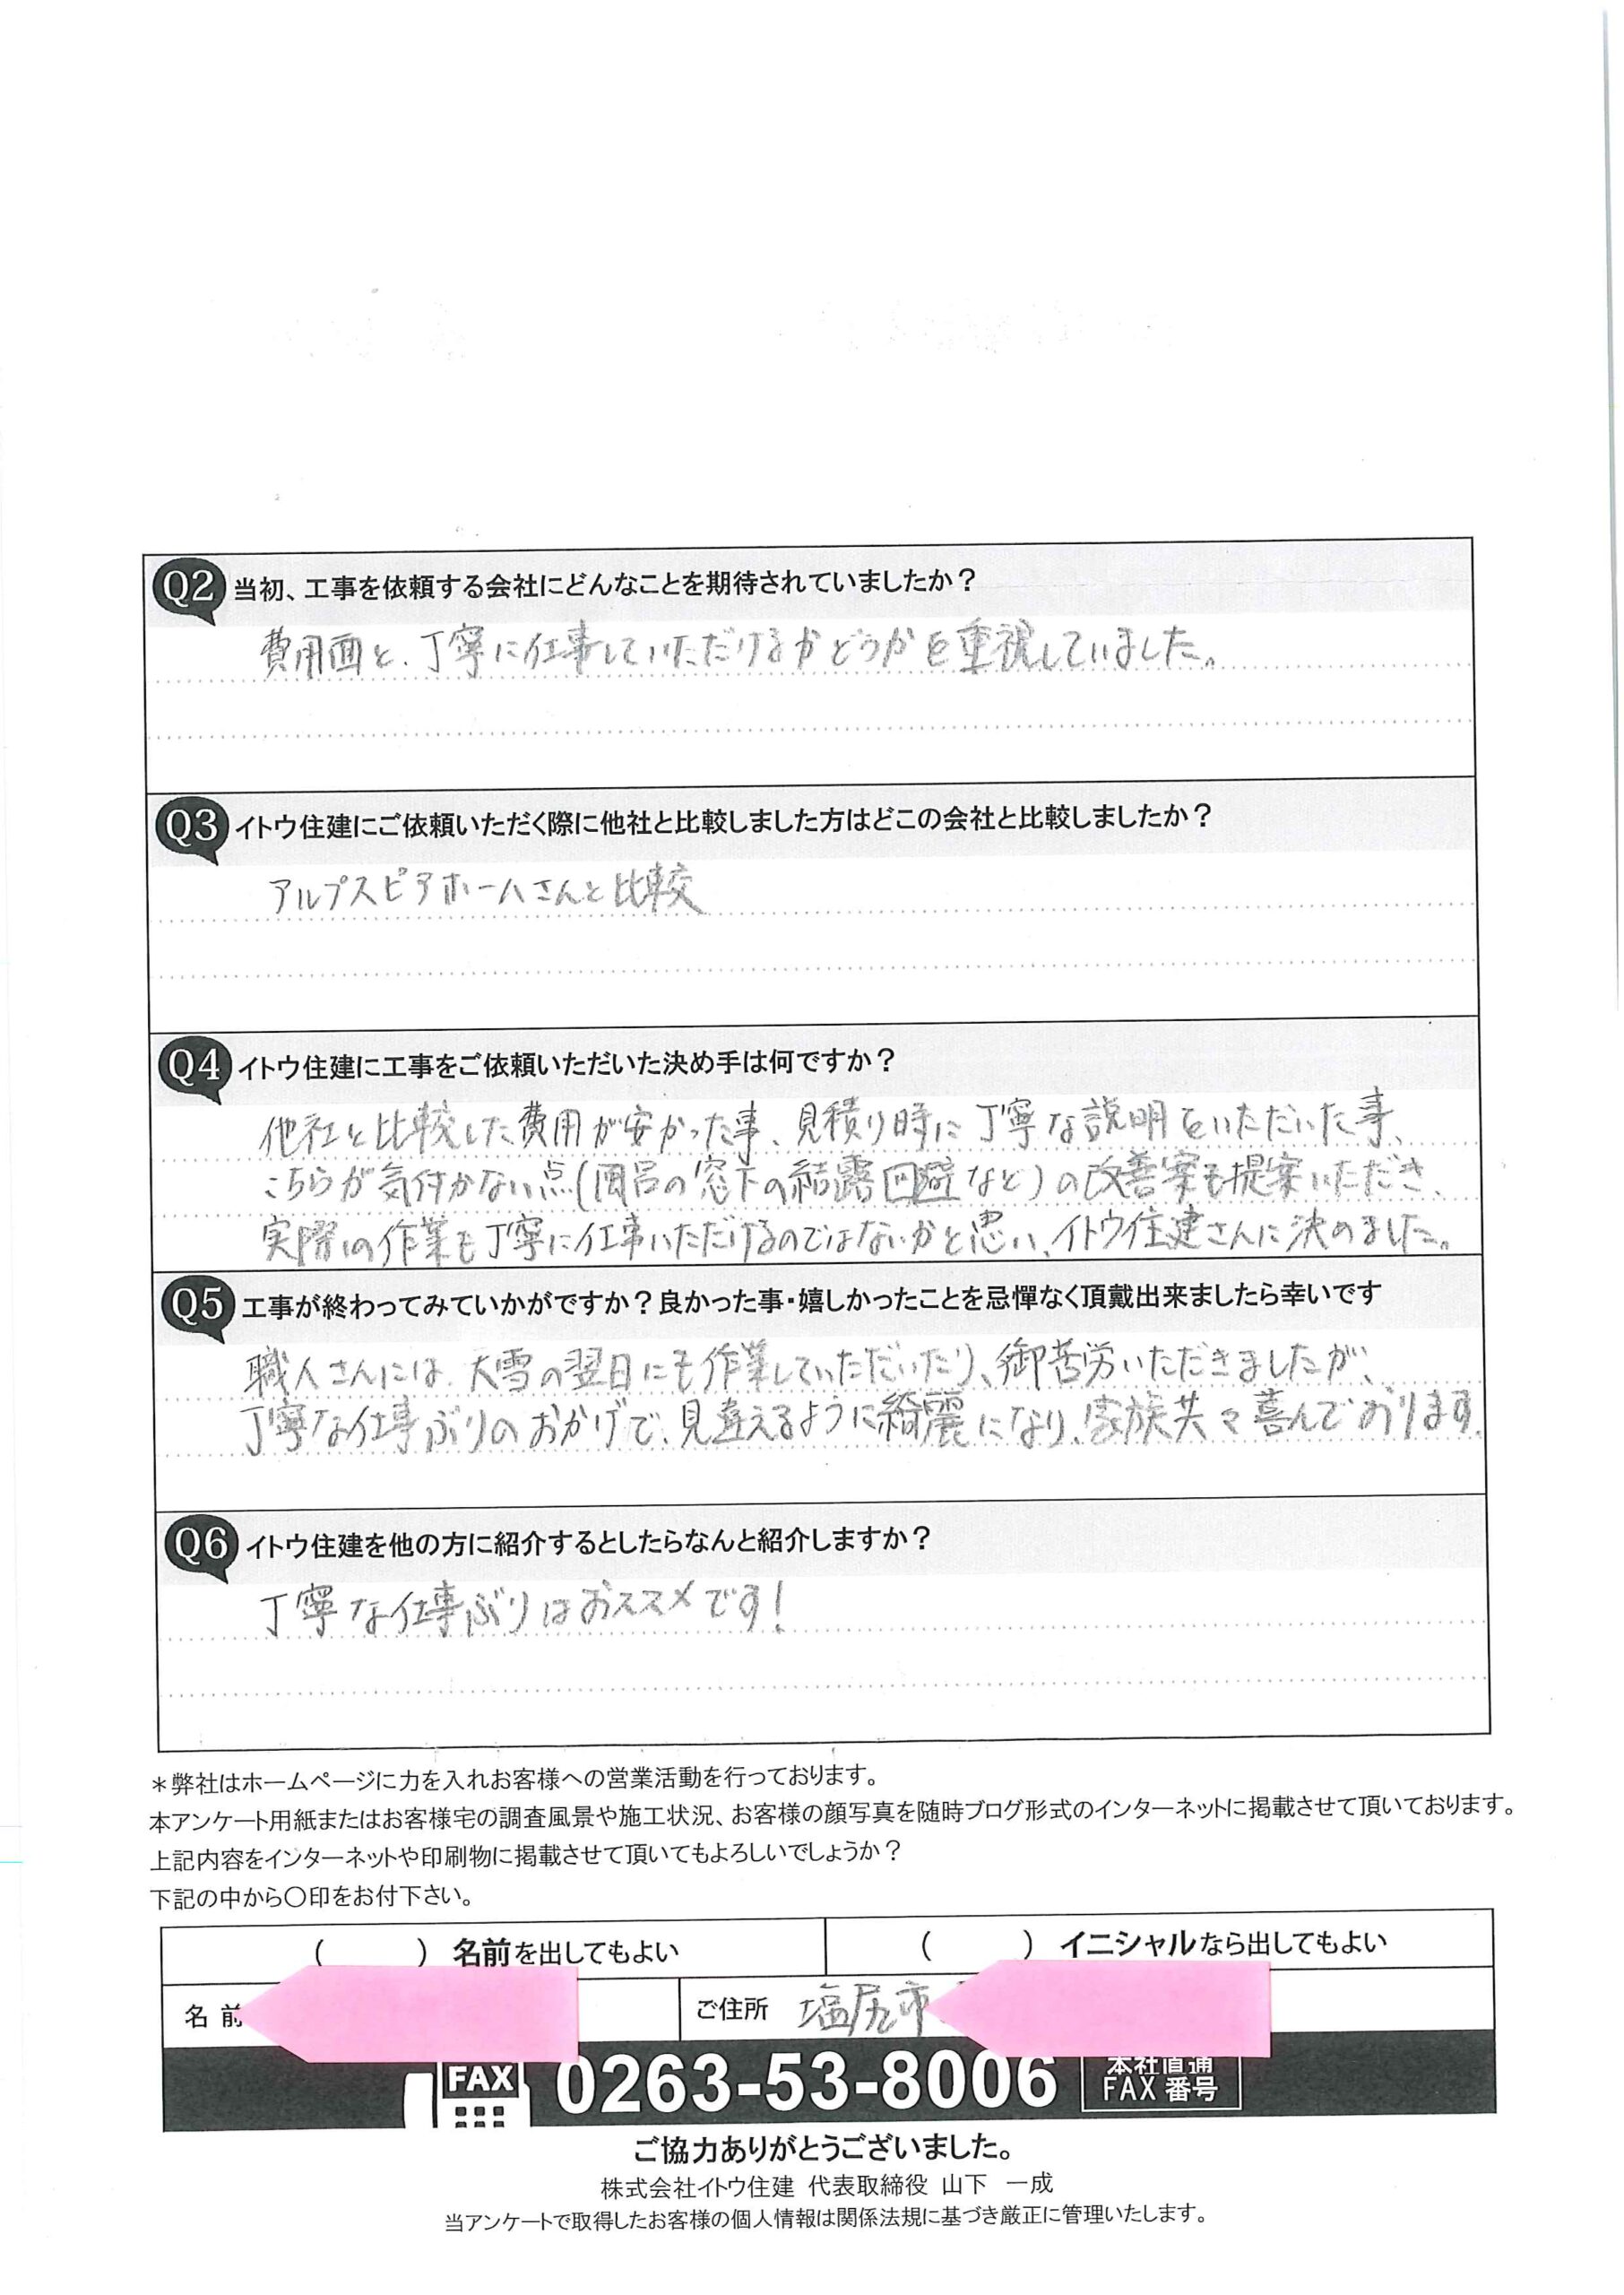 Q2 当初、工事を依頼する会社にどんなことを期待されていましたか？
費用面と、丁寧に仕事していただけるかどうかを重視していました。
Q3 イトウ住建にご依頼いただく際に他社と比較しました方はどこの会社と比較しましたか？
アルプスピアホームさんと比較
Q4 イトウ住建に工事をご依頼いただいた決め手は何ですか？
他社と比較した費用が安かった事、見積り時に丁寧な説明をいただいた事、
こちらが気付かない点(風呂の窓下の結露回避など)の改善案も提案いただき、
実際の作業も丁寧に仕事いただけるのではないかと思い、イトウ住建さんに決めました。
Q5 工事が終わってみていかがですか？良かった事・嬉しかったことを忌憚なく頂戴出来ましたら幸いです
職人さんには、大雪の翌日にも作業していただいたり、御苦労いただきましたが、
丁寧な仕事ぶりのおかげで、見違えるように綺麗になり、家族共々喜んでおります。
Q6 イトウ住建を他の方に紹介するとしたらなんと紹介しますか？
丁寧な仕事ぶりはおススメです！
＊弊社はホームページに力を入れお客様への営業活動を行っております。
本アンケート用紙またはお客様宅の調査風景や施工状況、お客様の顔写真を随時ブログ形式のインターネットに掲載させて頂いております。
上記内容をインターネットや印刷物に掲載させて頂いてもよろしいでしょうか？
下記の中から〇印をお付下さい。
（　　　）名前を出してもよい （　　　）イニシャルなら出してもよい
名前 ご住所 塩尻市
FAX 0263-53-8006 本社直通
FAX 番号
ご協力ありがとうございました。
株式会社イトウ住建 代表取締役 山下 一成
当アンケートで取得したお客様の個人情報は関係法規に基づき厳正に管理いたします。